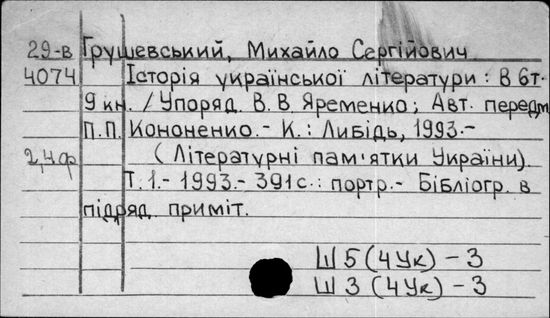 29-в Грушевський, Михайло Сергійович
4074 Історія української літератури: В 6т.
9 кн. / Упоряд. В. В. Яременко; Авт. передм.
П.П. Кононенко.- К.: Либідь, 1993.-
2,4ф (Літературні пам'ятки України).
Т. 1.- 1993.- 391с.: портр.- Бібліогр. в
підряд. приміт.
Ш5(4Ук)-3
Ш3(4Ук)-3